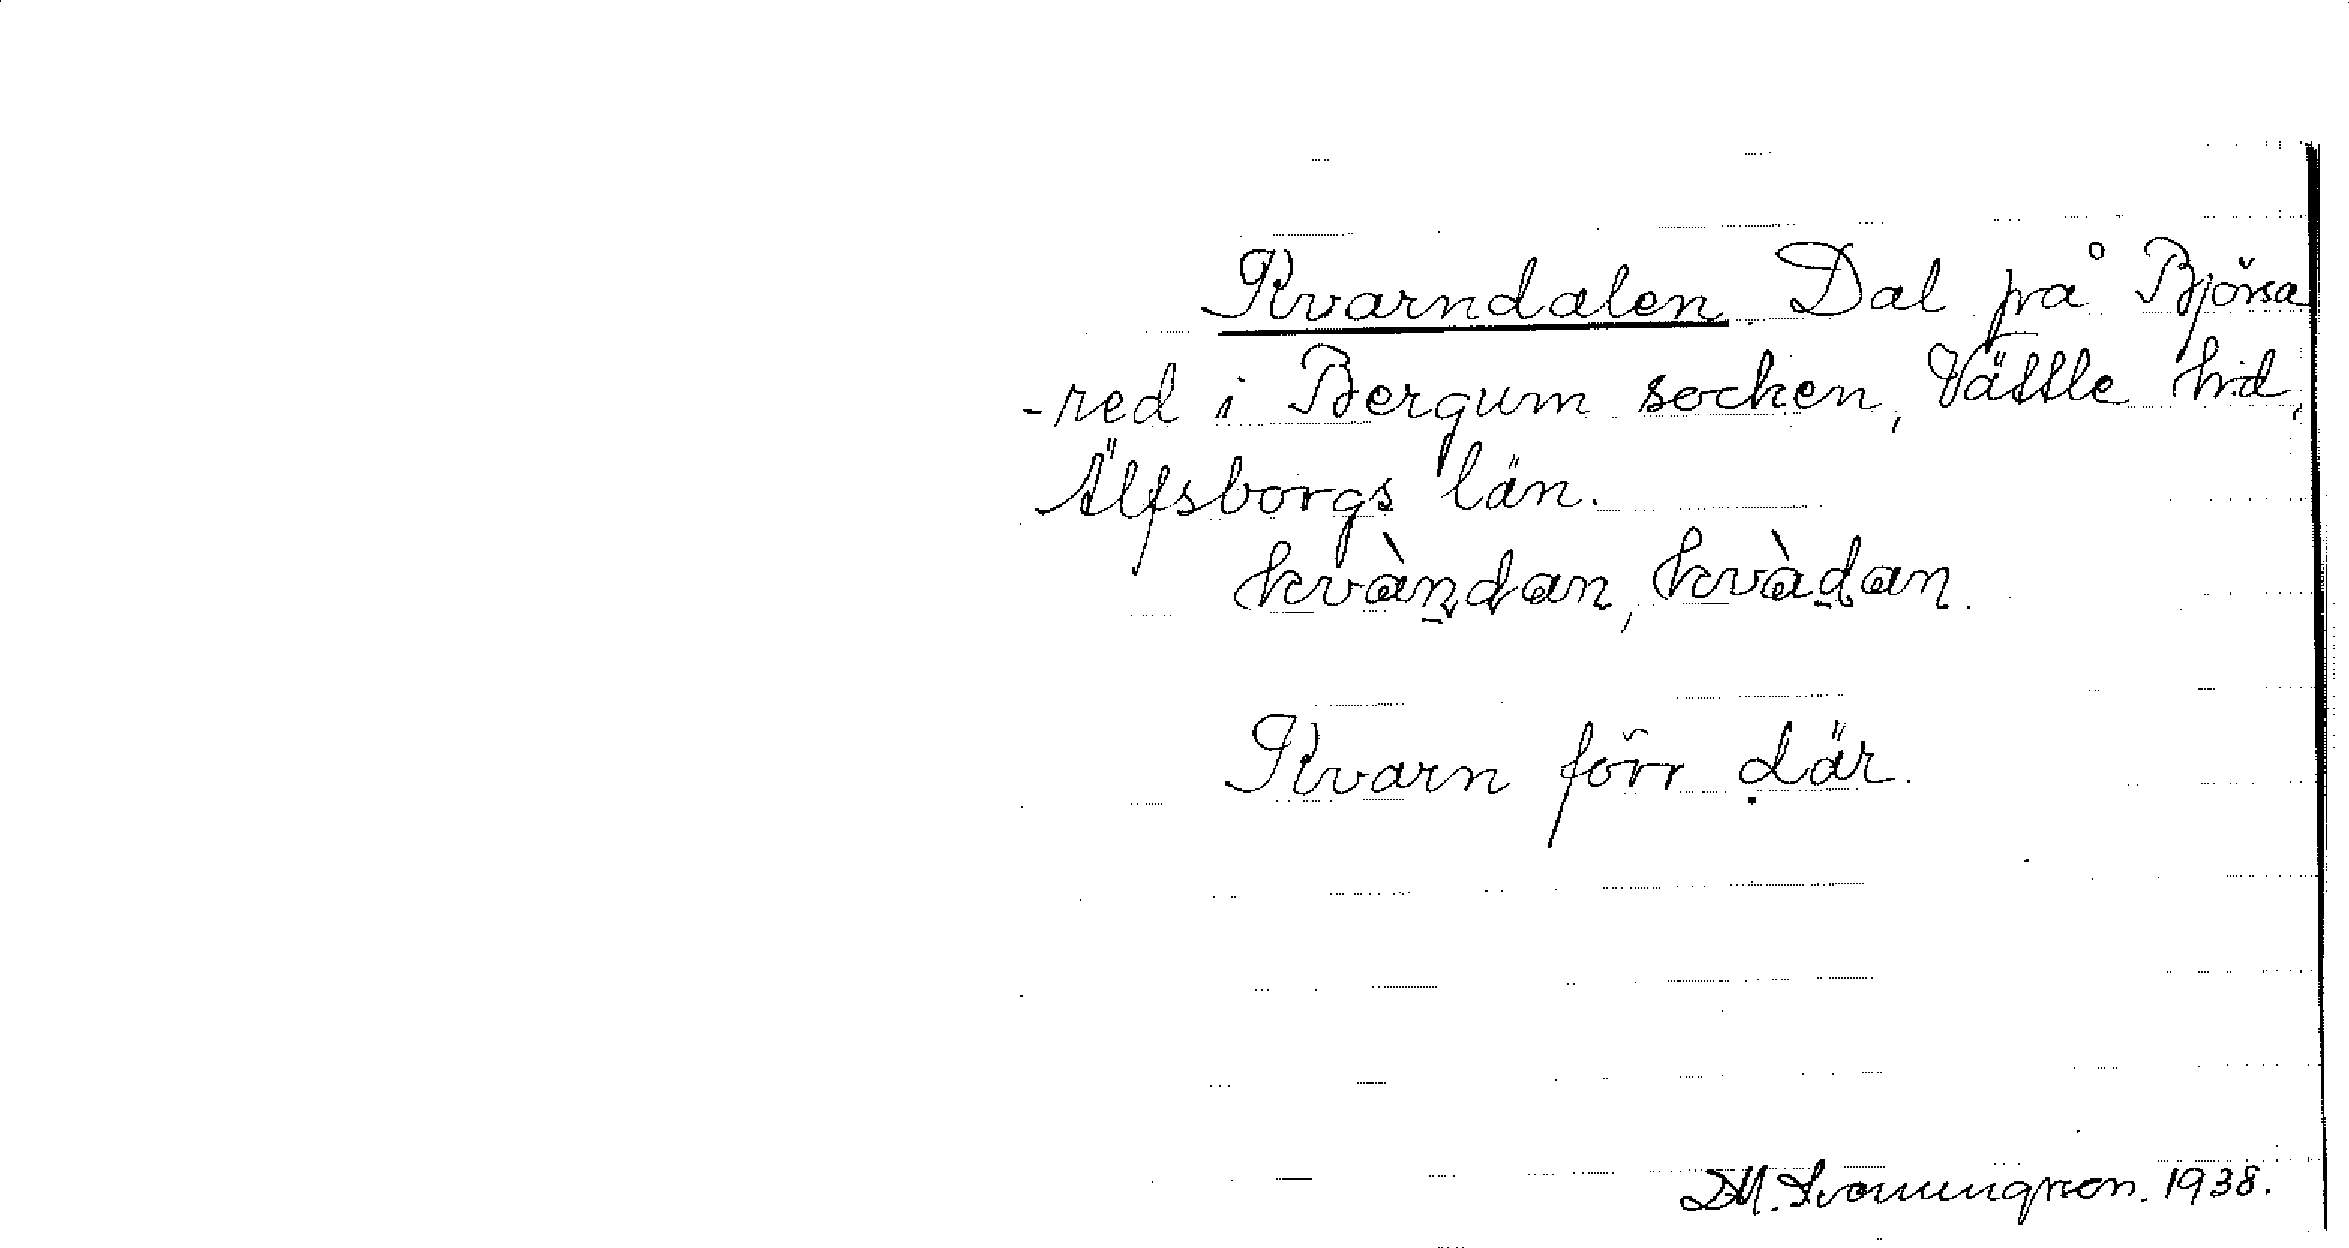 Kvarndalen. Dal på Björsa
-red i Bergum socken, Vättle hd,
Älfsborgs län.
kvàṉdan, kvàḏan.
Kvarn förr där.
D.M. Svenungsson. 1938.